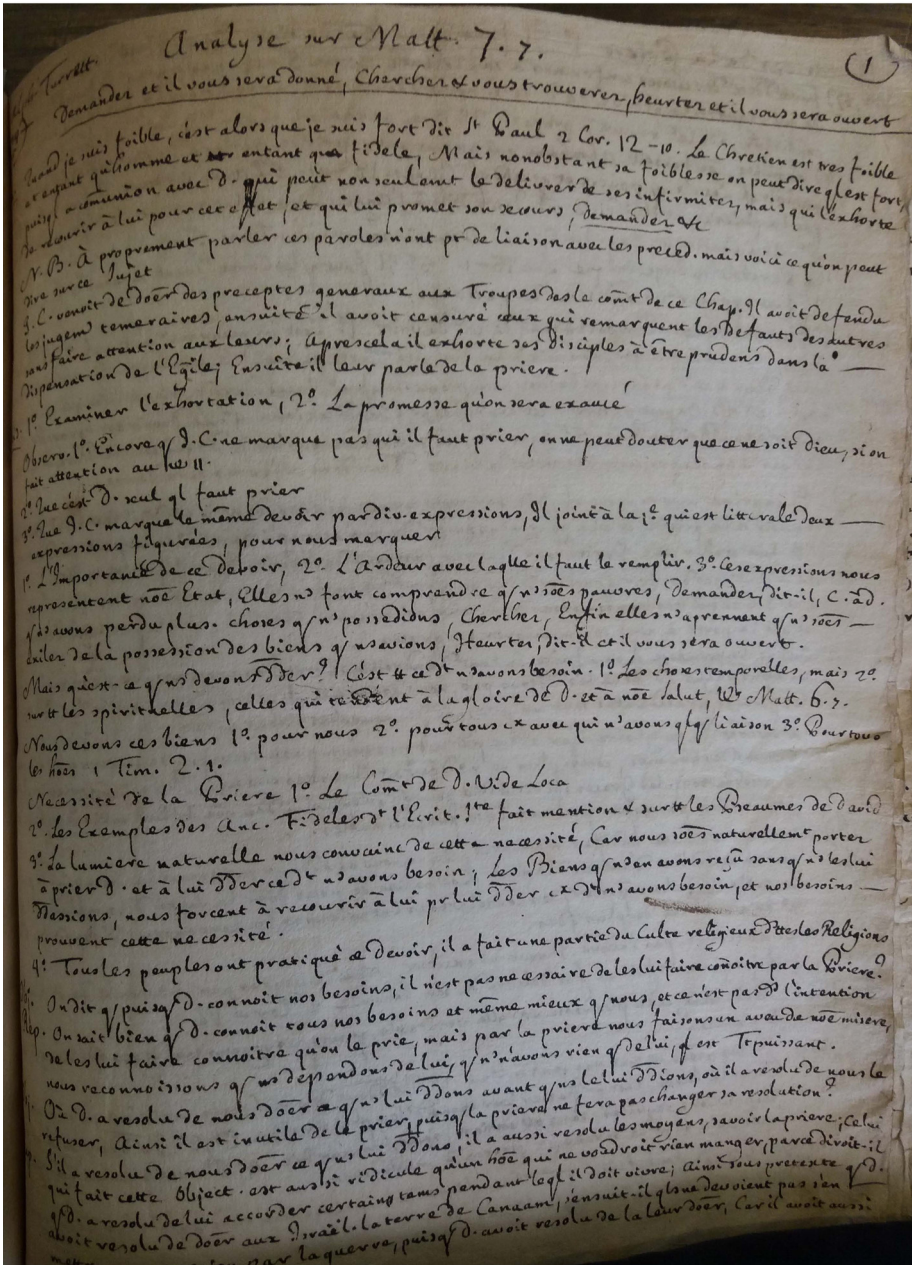 Analyse sur Matt. 7. 7.
1
Turrett.
Demander et il vous sera donné, Chercher & vous trouverer, heurter et il vous sera ouvert
Quand je suis foible, c'est alors que je suis fort dit St Paul 2 Cor. 12-10. Le Chretien est tres foible
et entant qu'homme et entant que fidele, Mais nonobstant sa foiblesse on peut dire ql est fort,
puisql a comunion avec D. qui peut non seulemt le delivrer de ses infirmiter, mais qui l'exhorte
de recourir à lui pour cet effet, et qui lui promet son secours, demander &c
N.B. À proprement parler ces paroles n'ont pt de liaison avec les preced. mais voici ce qu'on peut
dire sur ce sujet
J.C. venoit de doẽr des preceptes generaux aux Troupes des le com̃t de ce Chap. Il avoit defendu
les jugem temeraires, ensuite il avoit censuré ceux qui remarquent les Defauts des autres
sans faire attention aux leurs; Apres cela il exhorte ses disciples à être prudens dans la
dispensation de l'Eglĩe; Ensuite il leur parle de la priere.
1º. Examiner l'exhortation, 2º. La promesse qu'on sera exaucé
Observ. 1º. Encore q J.C. ne marque pas qui il faut prier, on ne peut douter que ce ne soit Dieu, si on
fait attention au ve 11.
2º. Que c'est D. seul ql faut prier
3º. Que J.C. marque le même devoir par div. expressions, Il joint à la 1e. qui est litterale deux
expressions figurées, pour nous marquer
1º. L'Importance de ce Devoir, 2º. L'Ardeur avec laqlle il faut le remplir. 3º. Ces expressions nous
representent nõe Etat, Elles ns font comprendre q ns soẽs pauvres, Demander, dit-il, C. àd.
q ns avons perdu plus. choses q ns possedions, Chercher, Enfin elles ns aprennent q ns soẽs
exiler de la possession des biens q ns avions, Heurter, dit-il et il vous sera ouvert.
Mais qu'est-ce q ns devons d̃der? C'est tt ce dt ns avons besoin. 1º. Les choses temporelles, mais 2º.
surtt les spirituelles, celles qui tendent à la gloire de D. et à nõe salut, Matt. 6. 7.
Nous devons ces biens 1º. pour nous 2º. pour tous cx avec qui ns avons qlq liaison 3º. Pour tous
les hoẽs 1 Tim. 2. 1.
Necessité de la Priere 1º. Le Com̃t de D. Vide Loca
2º. Les Exemples des Anc. Fideles dt l'Ecrit. Ste fait mention & surtt les Pseaumes de David
3º. La lumiere naturelle nous convainc de cette necessité, Car nous soẽs naturellemt porter
à prier D. et à lui d̃der ce dt ns avons besoin; Les Biens q ns en avons reçû sans q ns les lui
d̃dassions, nous forcent à recourir à lui pr lui d̃der cx dt ns avons besoin, et nos besoins
prouvent cette necessité.
4º. Tous les peuples ont pratiqué ce Devoir, il a fait une partie du Culte religieux de ttes les Religions
On dit q puisq D. connoit nos besoins, il n'est pas necessaire de les lui faire coñoitre par la Priere?
Rep. On sait bien q D. connoit tous nos besoins et même mieux q nous, et ce n'est pas ds l'intention
de les lui faire connoitre qu'on le prie, mais par la priere nous faisons un aveu de nõe misere,
nous reconnoissons q ns dependons de lui, q ns n'avons rien q de lui, ql est Tt puissant.
Où D. a resolu de nous doẽr ce q ns lui d̃dons avant q ns le lui d̃dions, où il a resolu de nous le
refuser, Ainsi il est inutile de le prier, puisq la priere ne fera pas changer sa resolution?
S'il a resolu de nous doẽr ce q ns lui d̃dons, il a aussi resolu les moyens, savoir la priere; Celui
qui fait cette Object. est aussi ridicule qu'un hoẽ qui ne voudroit rien manger, parce diroit-il
q D. a resolu de lui accorder certains tems pendant leql il doit vivre; Ainsi sous pretexte q D.
avoit resolu de doẽr aux Israël. la terre de Canaam, s'ensuit-il qls ne devoient pas s'en
par la guerre, puisq D. avoit resolu de la leur doẽr, Car il avoit aussi